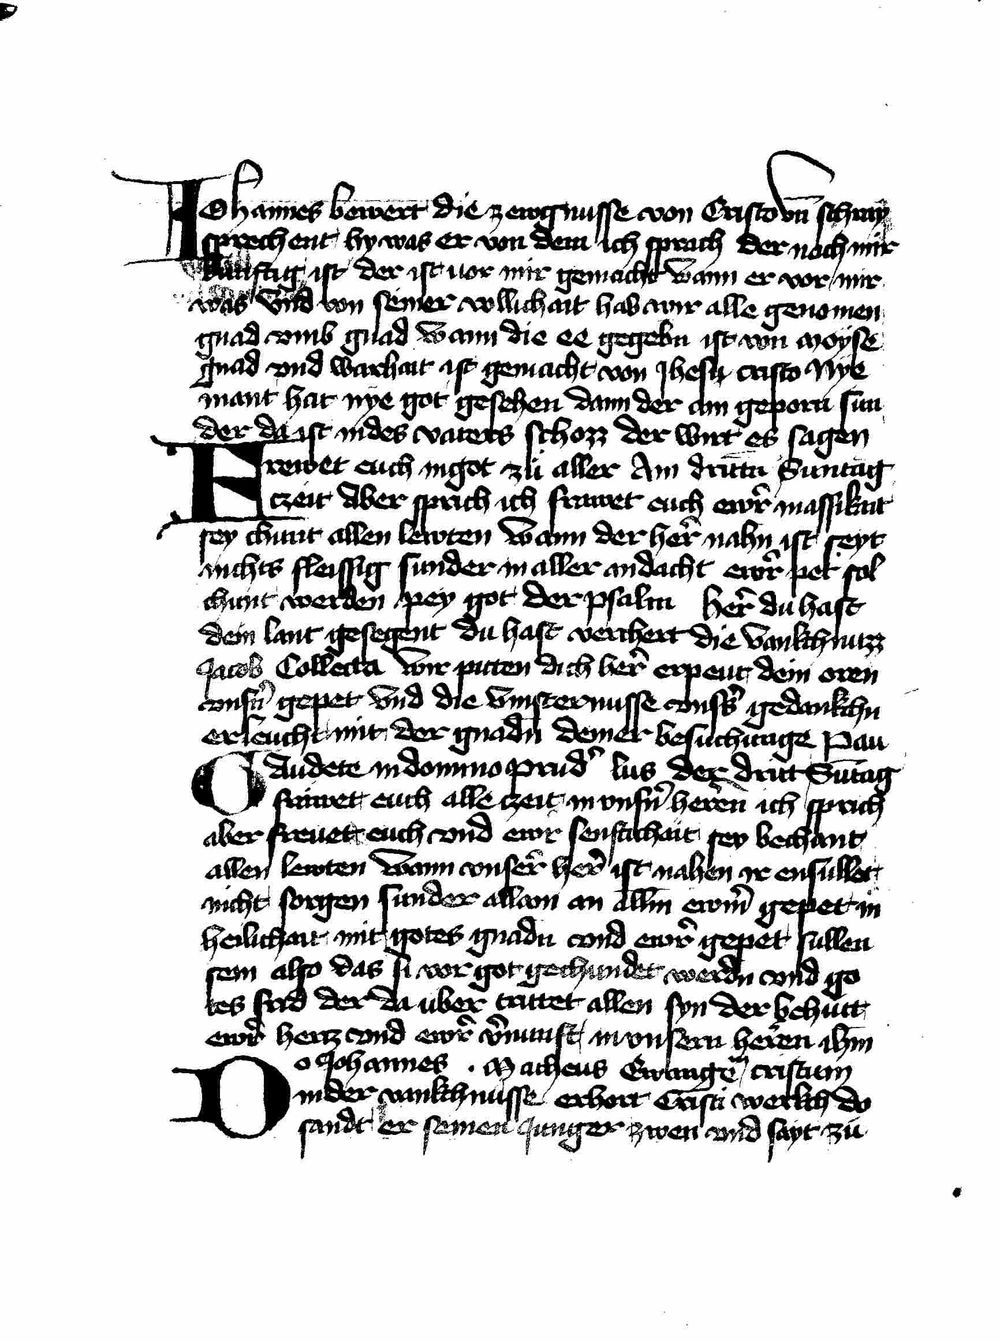 Johannes bewert die zewgnusse von Cristo vn̄ schray
sprechent hy was er von dem ich sprach der noch mir
künftig ist der ist vor mir gemacht wann er vor mir
was Vnd von seiner vollichait hab wir alle genomen
gnad vmb gnad wann die ee gegebn ist von moyse
gnad vnd warhait ist gemacht von Jhesu cristo Nye
mant hat nye got gesehen dann der ain geporn sun
der da ist in des vaters schozz der wirt es sagen
Frewet euch in got zu aller Am drittn Suntag
czeit Aber sprich ich frawet euch ewr̄ massikait
sey chunt allen lewten Wann der her̄ nahn ist seyt
nichts fleissig sunder in aller andacht ewr̄ pet sol
chunt werden pey got Der psalm Her̄ du hast
dein lant gesegent Du hast verchert die vankchnuzz
Jacob Collecta Wir pitten dich her̄ erpeut dein oren
vnsn̄ gepet Vnd die vinsternusse vnss̄ gedankchn
erleucht mit der gnadn̄ deiner besuchunge Pau
Gaudete in domino Prud' lus der dritt Sūntag
frawet euch alle czeit in vnsn̄ heren̄ ich sprich
aber frewet euch vnd ewr senftichait sey bechant
allen lewten Wann vnser̄ her̄ ist nahen ir ensullet
nicht sorgen sunder allain an allm̄ ewrm̄ gepet in
heilichait mit gotes gnadn vnd ewr̄ gepet sullen
sein also das si vor got gechundet werdn vnd go
tes frid der da uber trittet allen syn der behutt
ewr̄ herz vnd ewr̄ v̄nunft in vnsern heren̄ ihm̄
Do Johannes . Matheus Ewange̅ cristum
in der vankchnusse erhort Cristi werkch do
sandt er seinen Junger zwen vnd sayt zu